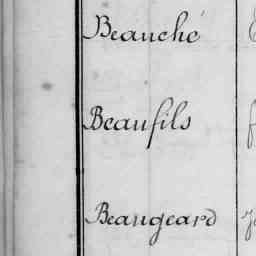 Beauché
Beaufils
Beaugeard